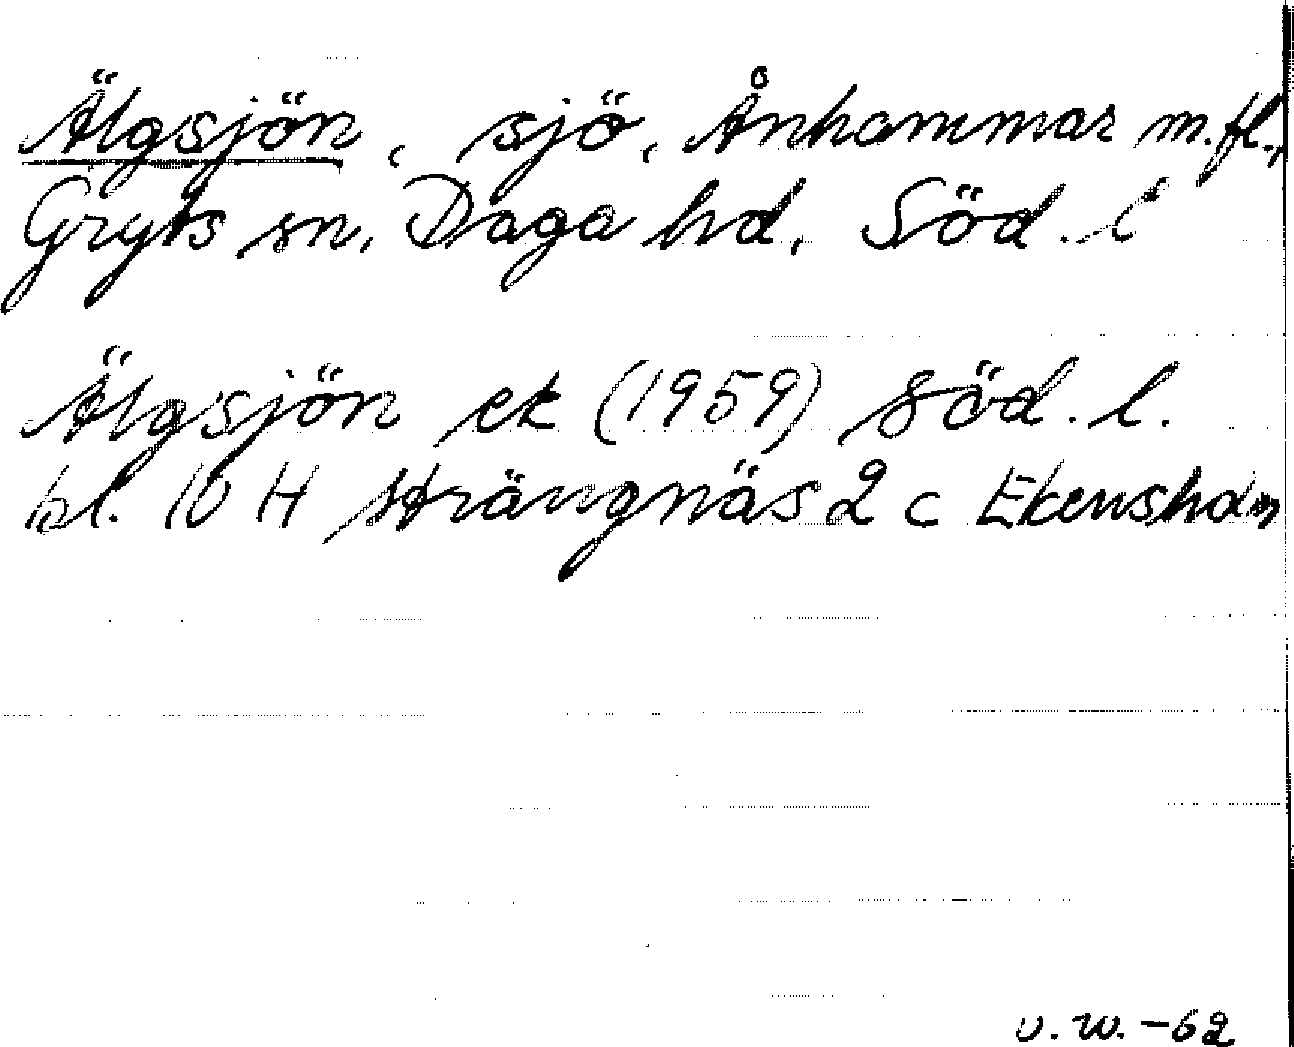 Älgsjön, sjö, Ånhammar m.fl.,
Gryts sn, Daga hd, Söd. l
Älgsjön ek (1959) Söd. l.
bl. 10 H Strängnäs 2 c Ekensholm
v. w. -62